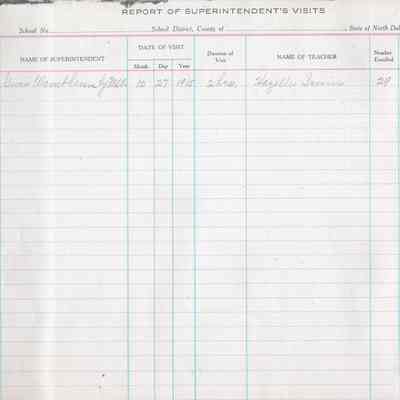 REPORT OF SUPERINTENDENT'S VISITS
School No. School District, County of , State of North Dak
NAME OF SUPERINTENDENT DATE OF VISIT Duration of Visit NAME OF TEACHER Number Enrolled
Month Day Year
10 27 1915 2 hrs. 29